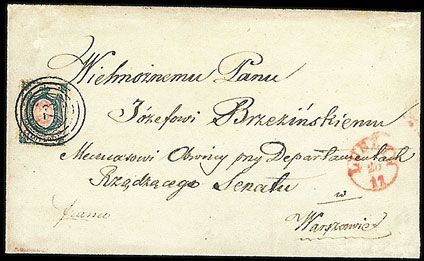 Wielmożnemu Panu
Józefowi Brzezińskiemu
Mecenasowi Obrońcy przy Departamentach
Rządzącego Senatu
w
Warszowie
franco
LUBLIN
11